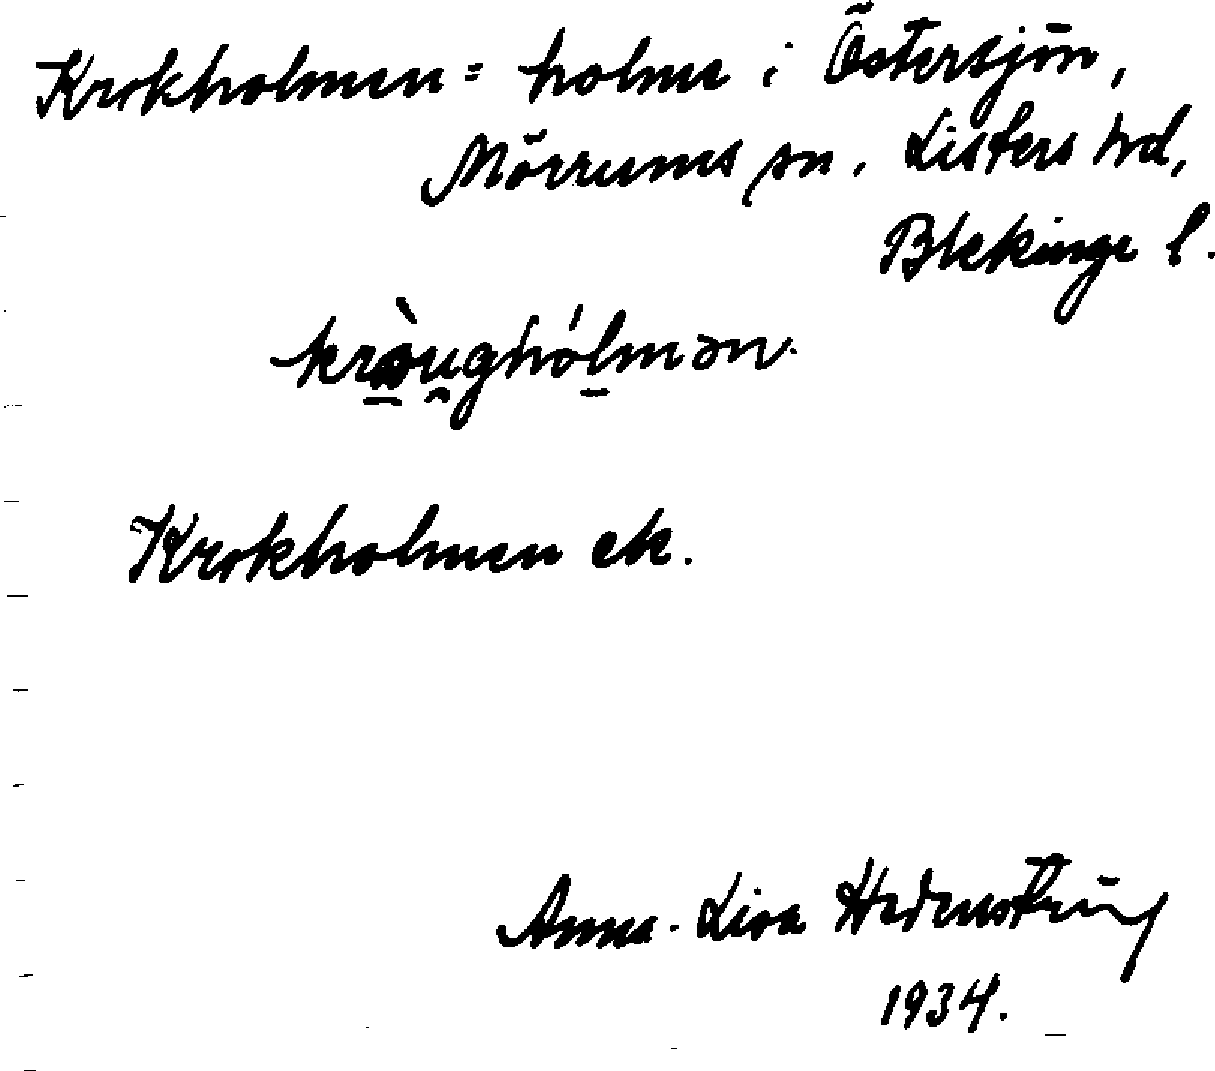 Krokholmen = holme i Östersjön,
Mörrums sn, Listers hd,
Blekinge l.
kròu̯ghólmən.
Krokholmen ek.
Anna-Lisa
1934.